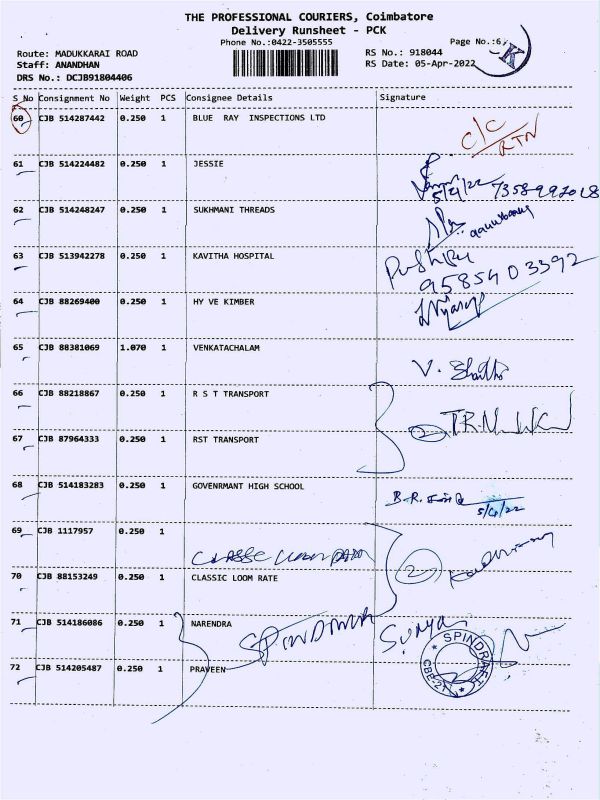 THE PROFESSIONAL COURIERS, Coimbatore
Delivery Runsheet - PCK
Phone No.:0422-3505555
Page No.:6
K
Route: MADUKKARAI ROAD
Staff: ANANDHAN
DRS No.: DCJB91804406
RS No.: 918044
RS Date: 05-Apr-2022
S No Consignment No Weight PCS Consignee Details Signature
60 CJB 514287442 0.250 1 BLUE RAY INSPECTIONS LTD
C/C
RTN
61 CJB 514224482 0.250 1 JESSIE
5/4/22 7358992018
62 CJB 514248247 0.250 1 SUKHMANI THREADS
63 CJB 513942278 0.250 1 KAVITHA HOSPITAL
9585403392
64 CJB 88269400 0.250 1 HY VE KIMBER
65 CJB 88381069 1.070 1 VENKATACHALAM
66 CJB 88218867 0.250 1 R S T TRANSPORT
67 CJB 87964333 0.250 1 RST TRANSPORT
2
68 CJB 514183283 0.250 1 GOVENRMANT HIGH SCHOOL
5/4/22
69 CJB 1117957 0.250 1
2
70 CJB 88153249 0.250 1 CLASSIC LOOM RATE
71 CJB 514186086 0.250 1 NARENDRA
Surya
72 CJB 514205487 0.250 1 PRAVEEN
SPINDRAFT
CBE-21